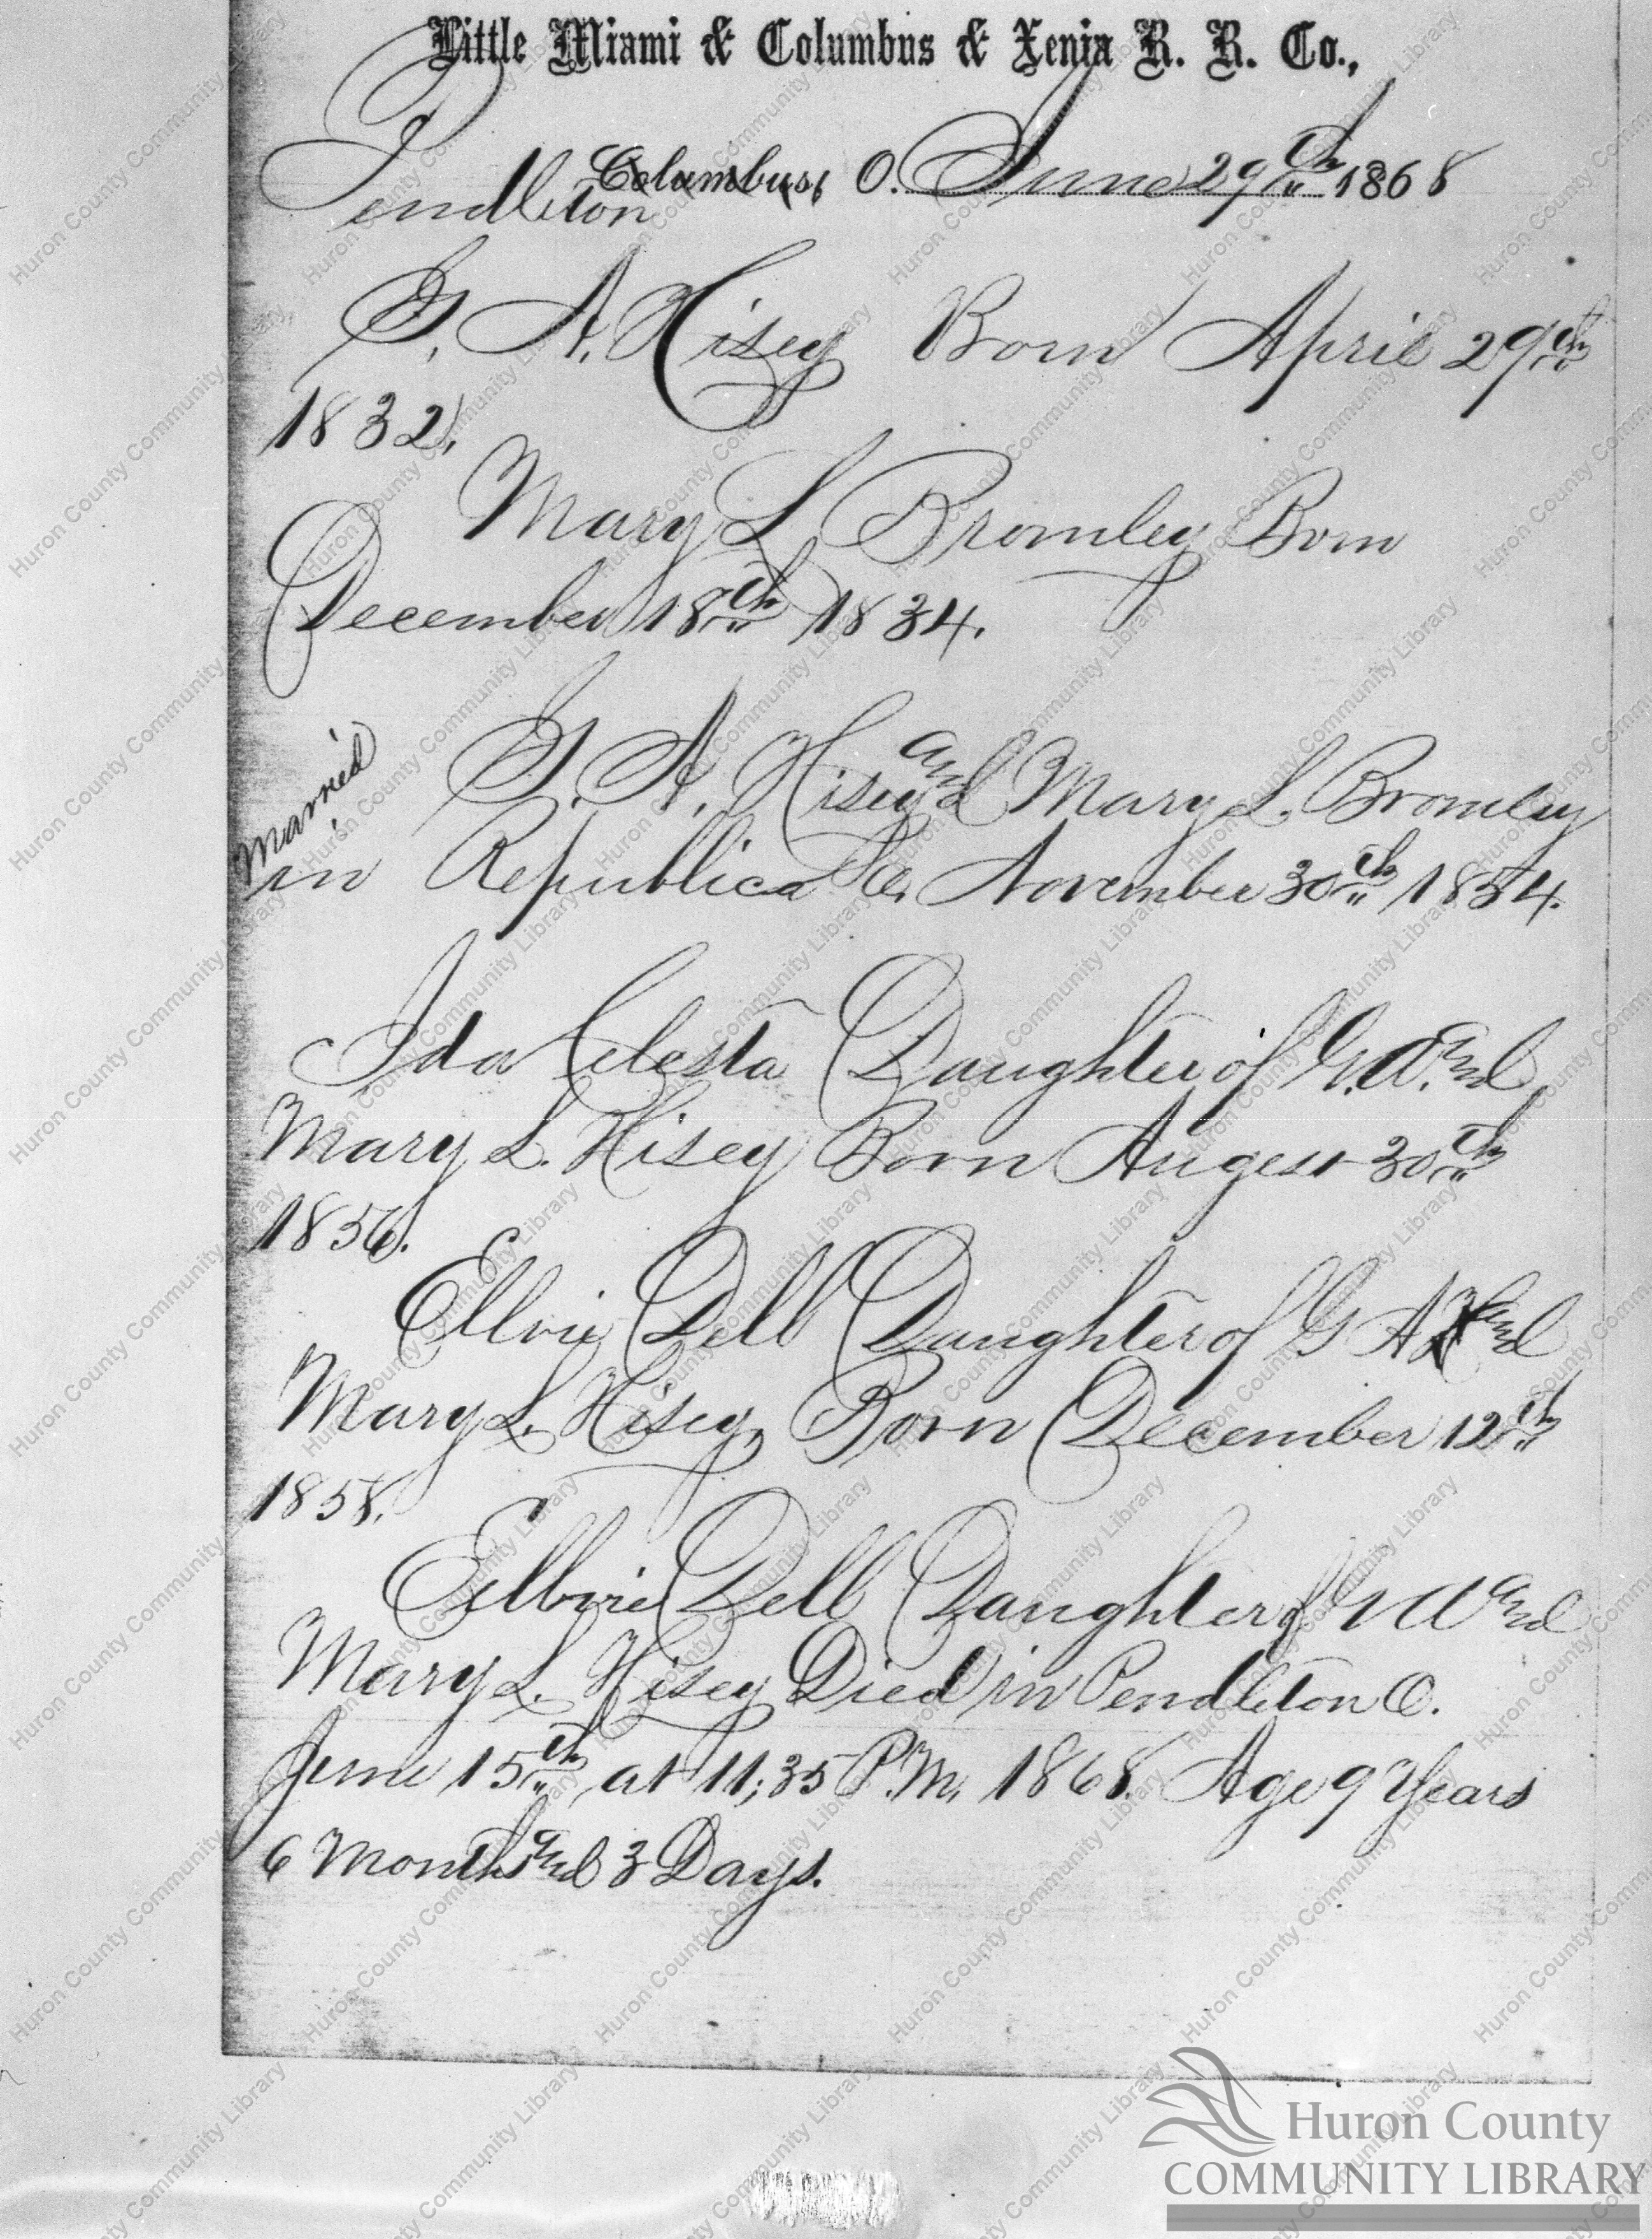 Little Miami & Columbus & Xenia R. R. Co.,
Columbus, O. June 29th 1868
Pendleton
G. A. Hisey Born April 29th
1832.
Mary L Bromley Born
December 18th 1834.
Married
G. A. Hisey and Mary L. Bromley
in Republic O. November 30th 1854.
Ida Celesta Daughter of G. A. and
Mary L. Hisey Born Augest 30th
1856.
Ellvie Dell Daughter of G A and
Mary L. Hisey, Born December 12th
1858.
Ellvie Dell Daughter of G A and
Mary L. Hisey Died in Pendleton O.
June 15th at 11;35 P.M. 1868. Age 9 Years
6 Months and 3 Days.
Huron County
COMMUNITY LIBRARY